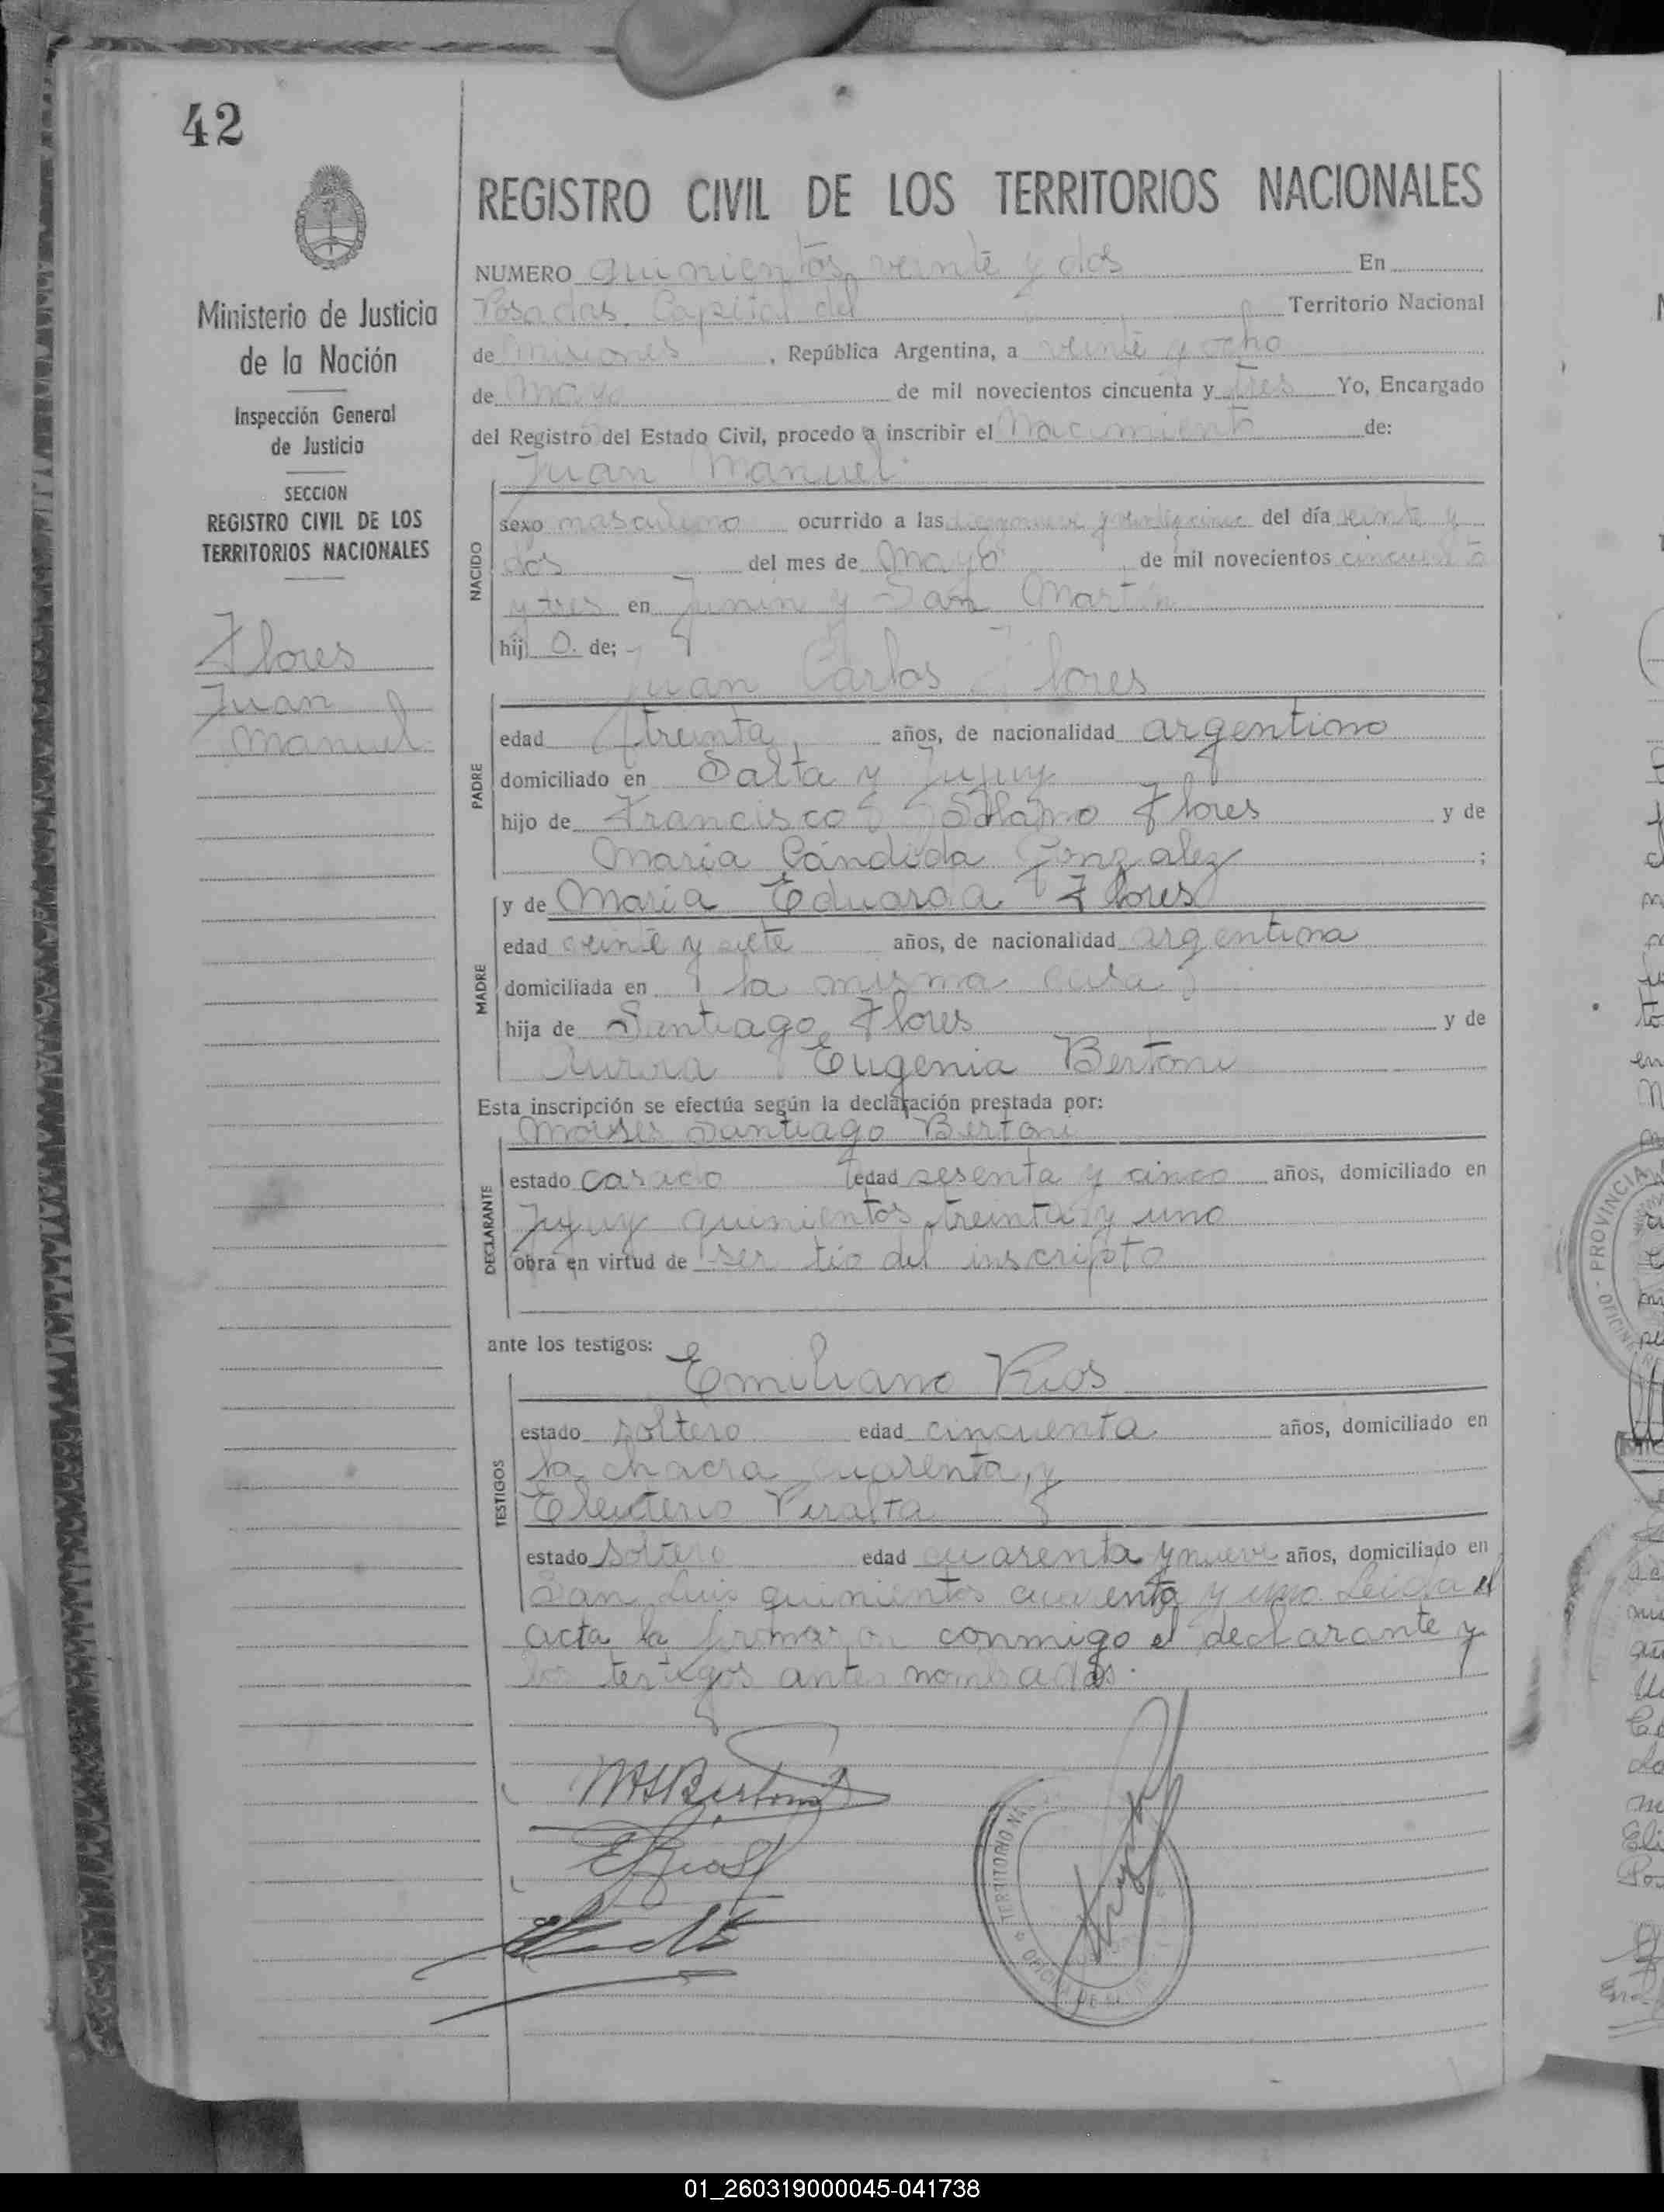 42
REGISTRO CIVIL DE LOS TERRITORIOS NACIONALES
Ministerio de Justicia
de la Nación
Inspección General
de Justicia
SECCION
REGISTRO CIVIL DE LOS
TERRITORIOS NACIONALES
Flores
Juan
Manuel
NUMERO quinientos veinte y dos En
Posadas Capital del Territorio Nacional
de Misiones, República Argentina, a veinte y ocho
de Mayo de mil novecientos cincuenta y tres Yo, Encargado
del Registro del Estado Civil, procedo a inscribir el Nacimiento de:
Juan Manuel
NACIDO
sexo masculino ocurrido a las diez y nueve y veinte y cinco del día veinte y
dos del mes de Mayo de mil novecientos cincuenta
y tres en Junin y San Martín
hijo de;
Juan Carlos Flores
PADRE
edad treinta años, de nacionalidad argentino
domiciliado en Salta y Jujuy
hijo de Francisco Flores y de
Maria Cándida Gonzalez ;
MADRE
y de Maria Eduarda Flores
edad veinte y siete años, de nacionalidad argentina
domiciliada en la misma casa
hija de Santiago Flores y de
Aurora Eugenia Bertoni
Esta inscripción se efectúa según la declaración prestada por:
Moises Santiago Bertoni
DECLARANTE
estado casado edad sesenta y cinco años, domiciliado en
Jujuy quinientos treinta y uno
obra en virtud de ser tío del inscripto
ante los testigos:
Emiliano Rios
TESTIGOS
estado soltero edad cincuenta años, domiciliado en
la chacra cuarenta, y
Eleuterio Peralta
estado soltero edad cuarenta y nueve años, domiciliado en
San Luis quinientos cuarenta y uno. Leida el
acta la firmaron conmigo el declarante y
los testigos antes nombrados.
MSBertoni
ERios
TERRITORIO NA
OFICINA DE
PROVINCIA
01_260319000045-041738